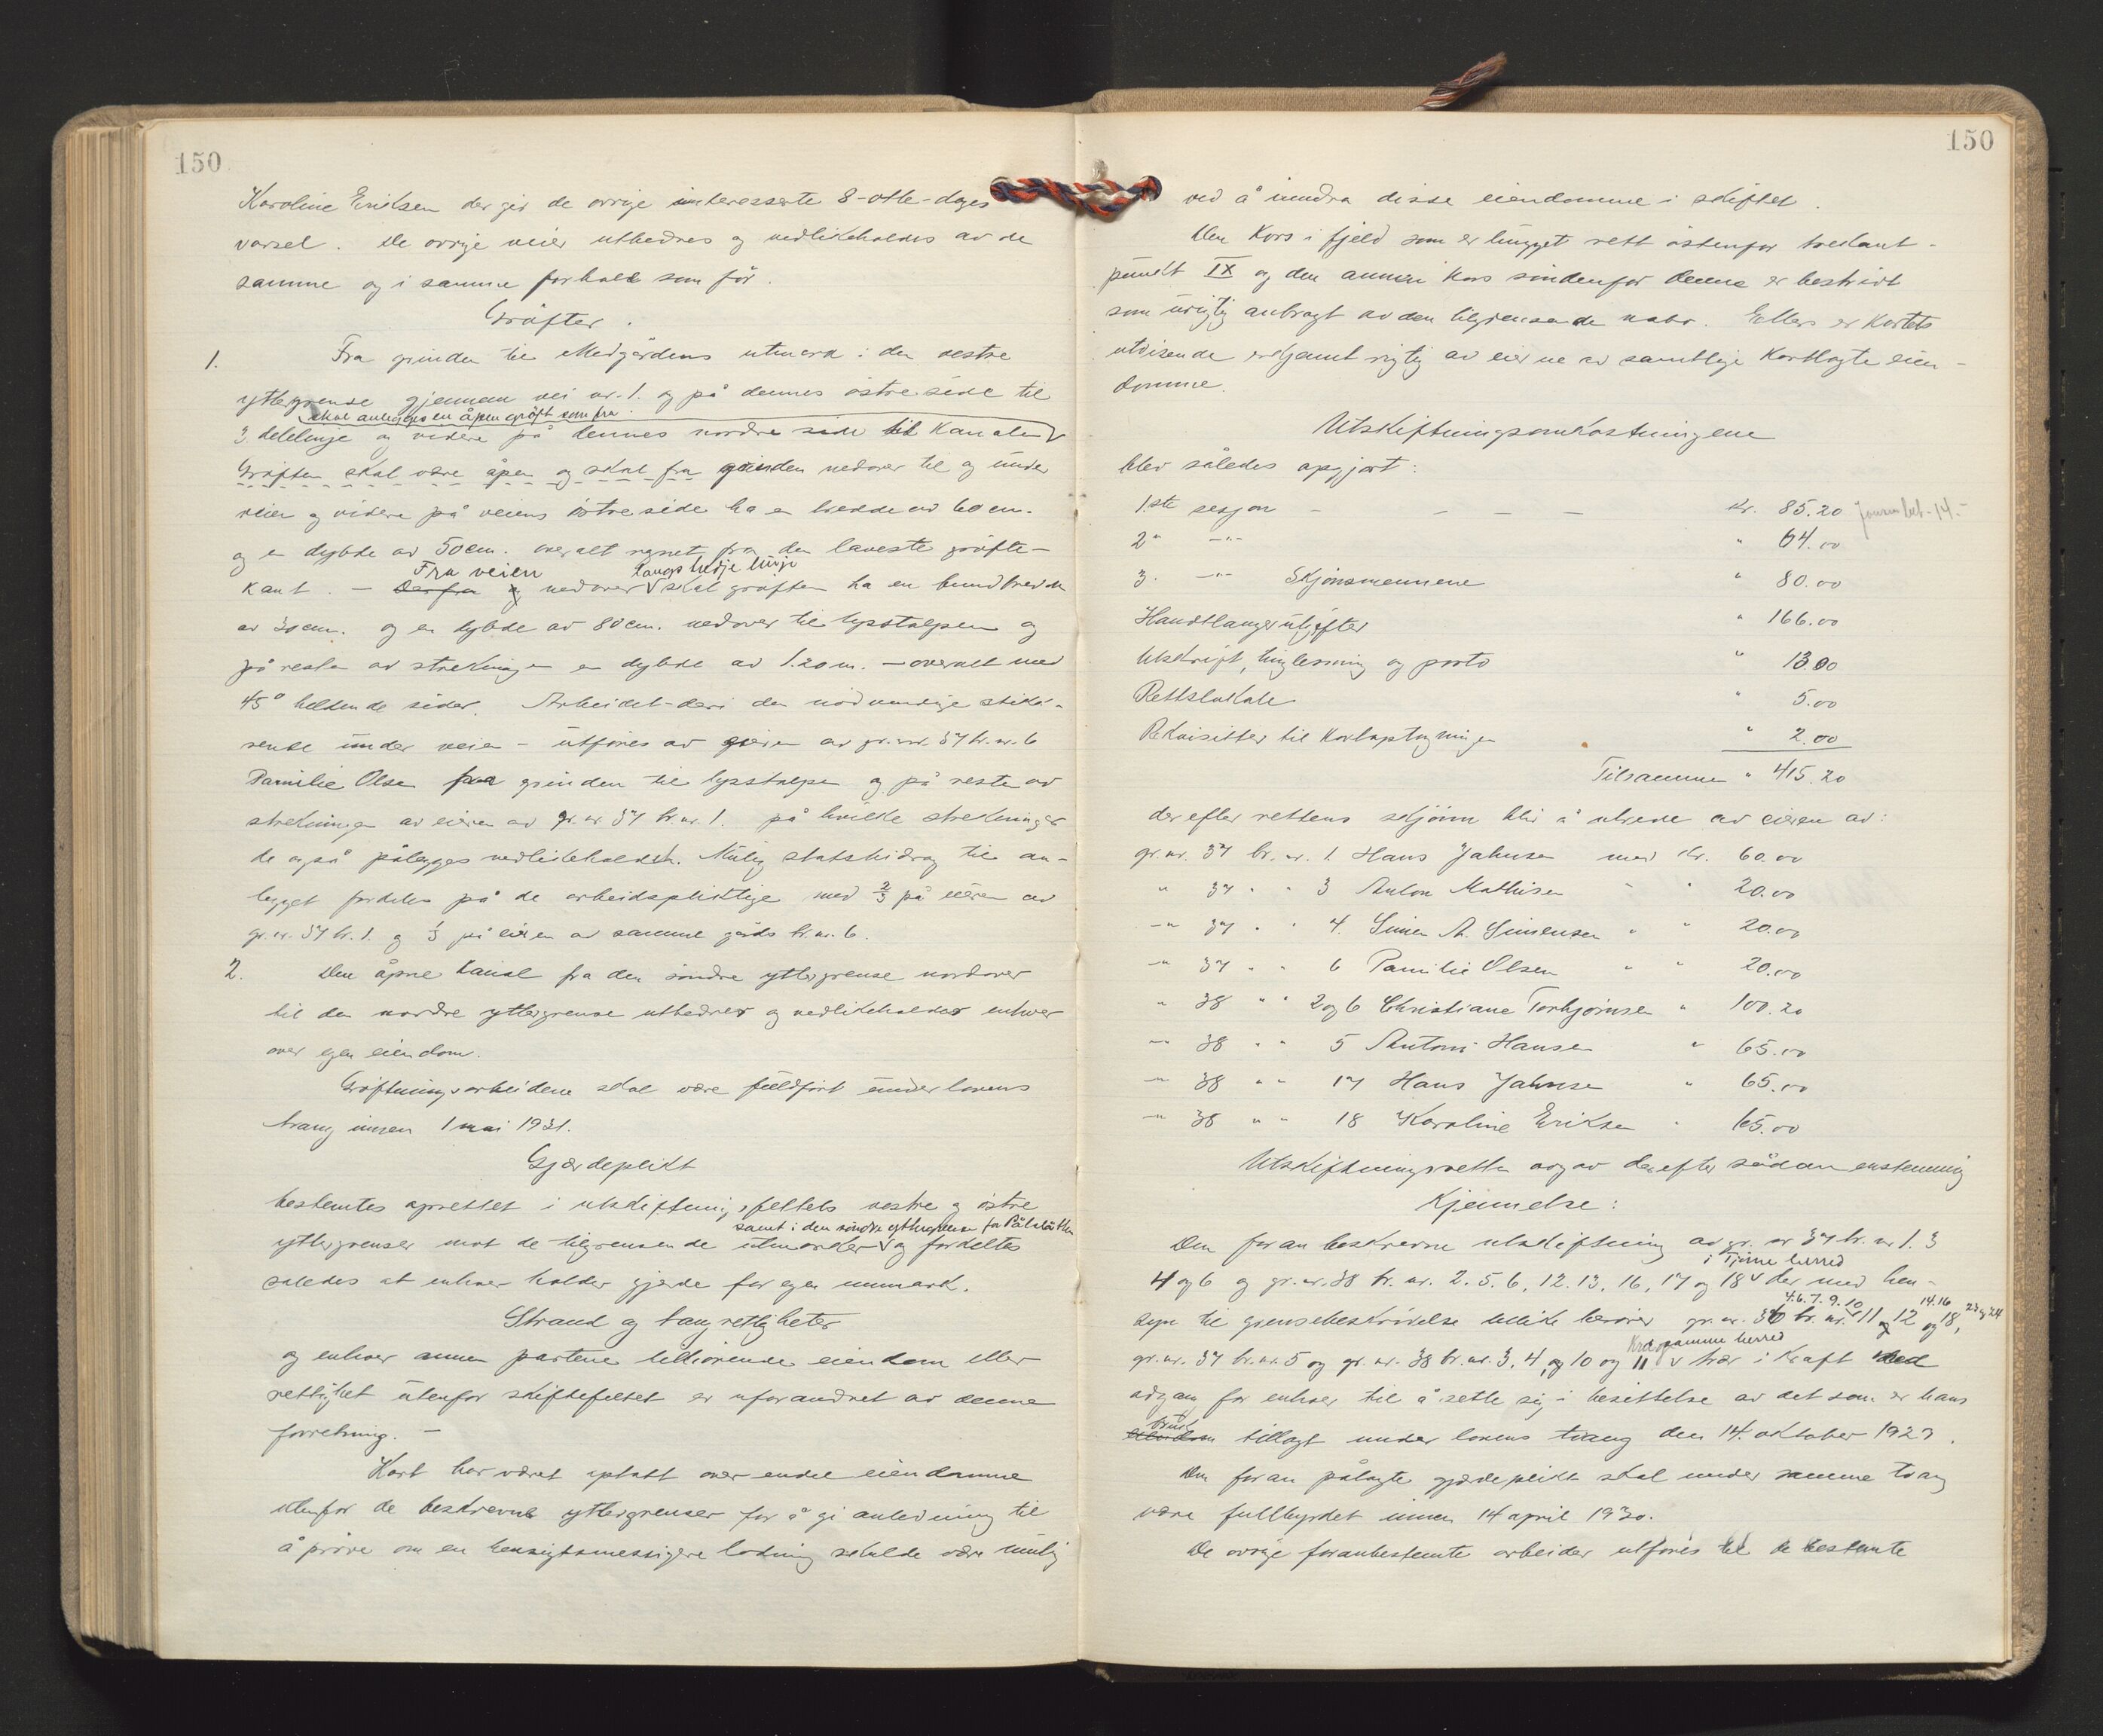 150
Karoline Eriksen der gir de øvrige interesserte 8-otte-dages
varsel. De øvrige veier utbedres og vedlikeholdes av de
samme og i samme forhold som før.
Grøfter.
1. Fra grinden til Medgårdens utmark i den vestre
yttergrense gjennem vei nr. 1. og på dennes østre side til
skal anlegges en åpen grøft som fra
3 delelinje og videre på dennes nordre side til Kanalen
Grøften skal være åpen og skal fra grinden nedover til og under
veien og videre på veiens østre side ha en bredde av 60 cm.
og en dybde av 50 cm. overalt regnet fra den laveste grøfte-
Fra veien langs tredje linje
kant. – Derfra og nedover skal grøften ha en bundbredde
av 30 cm. og en dybde av 80 cm. nedover til lysstolpen og
på resten av strekningen en dybde av 1.20 m. – overalt med
45° heldende sider. Arbeidet – deri den nødvendige stikk-
rende under veien – utføres av eieren av gr.nr. 37 br.nr. 6
Pamilie Olsen fra grinden til lysstolpen og på resten av
strekningen av eieren av gr.nr 37 br.nr. 1. på hvilke strekninger
de også pålegges vedlikeholdet. Mulig statsbidrag til an-
legget fordeles på de arbeidspliktige med 2/3 på eieren av
gr.nr. 37 br. 1. og 1/3 på eieren av samme gårds br.nr. 6.
2. Den åpne kanal fra den søndre yttergrense nordover
til den nordre yttergrense utbedres og vedlikeholdes enhver
over egen eiendom.
Grøftningsarbeidene skal være fuldført under lovens
tvang innen 1 mai 1931.
Gjærdeplikt
bestemtes oprettet i utskiftningsfeltets vestre og østre
samt i den søndre yttergrense for
yttergrenser mot de tilgrensende utmarker og fordeltes
således at enhver holder gjerde for egen innmark.
Strand og tangrettigheter
og enhver annen partene tilhørende eiendom eller
rettighet utenfor skiftefeltet er uforandret av denne
forretning. –
Kart har været optatt over endel eiendomme
utenfor de beskrevne yttergrenser for å gi anledning til
å prøve om en hensigtsmessigere lodning skulde være mulig
150
ved å inndra disse eiendomme i skiftet.
Den Kors i fjeld som er hugget rett østenfor trekant-
punkt IX og den annen kors søndenfor denne er bestridt
som urigtig anbragt av den tilgrensende nabo. Ellers er Kartets
utvisende erkjent rigtig av eierne av samtlige Kartlagte eien-
domme.
Utskiftningsomkostningene
blev således opgjort:
1ste sesjon – – – – Kr. 85.20
2" –"– " 64.00
3. –"– Skjønsmennene " 80.00
Handtlangerutgifter " 166.00
Utskrift, tinglesning og porto " 13.00
Rettslokale " 5.00
Rekvisitter til Kartoptagningen " 2.00
Tilsammen " 415.20
der efter rettens skjønn blir å utrede av eieren av:
gr.nr. 37 br.nr. 1. Hans Jahnsen med Kr. 60.00
" 37 " " 3 Anton Mathisen " " 20.00
–"– 37 " " 4. Simen A. Simensen " " 20.00
–"– 37 " " 6 Pamilie Olsen " " 20.00
" 38 " " 2 og 6 Christiane Torbjørnsen " 100.20
–"– 38 " " 5 Antoni Hansen " 65.00
–"– 38 " " 17 Hans Jahnsen " 65.00
–"– 38 " " 18 Karoline Eriksen " 65.00
Utskiftningsretten avgav derefter sådan enstemmig
Kjennelse:
Den foran beskrevne utskiftning av gr. nr 37 br. nr 1. 3
i Tjøme herred
4 og 6 og gr.nr. 38 br. nr. 2. 5. 6, 12. 13, 16, 17 og 18 der med hen-
4. 6. 7. 9. 10 14. 16 23 og 24
syn til grensebeskrivelse tillike berører gr.nr. 36 br. nr. 11 og 12 og 18,
samme herred
gr.nr. 37 br.nr. 5 og gr.nr. 38 br.nr. 3, 4, og 10 og 11 trær i Kraft med
adgang for enhver til å sette sig i besittelse av det som er hans
bruk
eiendom tillagt under lovens tvang den 14. oktober 1929.
Den foran pålagte gjerdeplikt skal under samme tvang
være fullbyrdet innen 14 april 1930.
De øvrige foranbestemte arbeider utføres til de bestemte